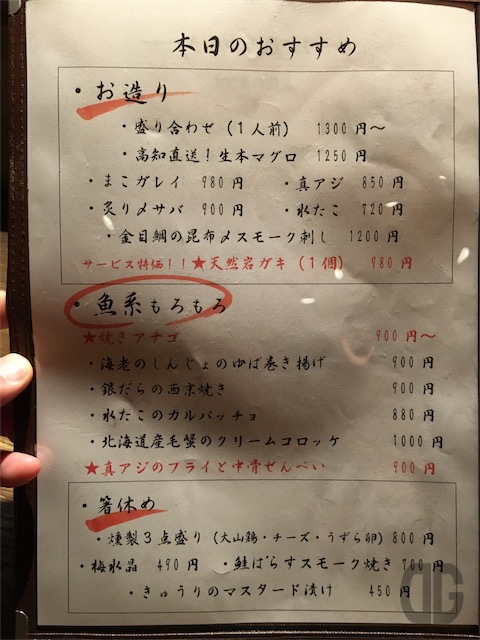 本日のおすすめ
・お造り
・盛り合わせ(1人前) 1300円〜
・高知直送！生本マグロ 1250円
・まこガレイ 980円 ・真アジ 850円
・炙り〆サバ 900円 ・水たこ 720円
・金目鯛の昆布〆スモーク刺し 1200円
サービス特価！！★天然岩ガキ(1個) 980円
・魚系もろもろ
★焼きアナゴ 900円〜
・海老のしんじょのゆば巻き揚げ 900円
・銀だらの西京焼き 900円
・水たこのカルパッチョ 880円
・北海道産毛蟹のクリームコロッケ 1000円
★真アジのフライと中骨せんべい 900円
・箸休め
・燻製3点盛り(大山鶏・チーズ・うずら卵) 800円
・梅水晶 490円 ・鮭はらすスモーク焼き 700円
・きゅうりのマスタード漬け 450円
DG